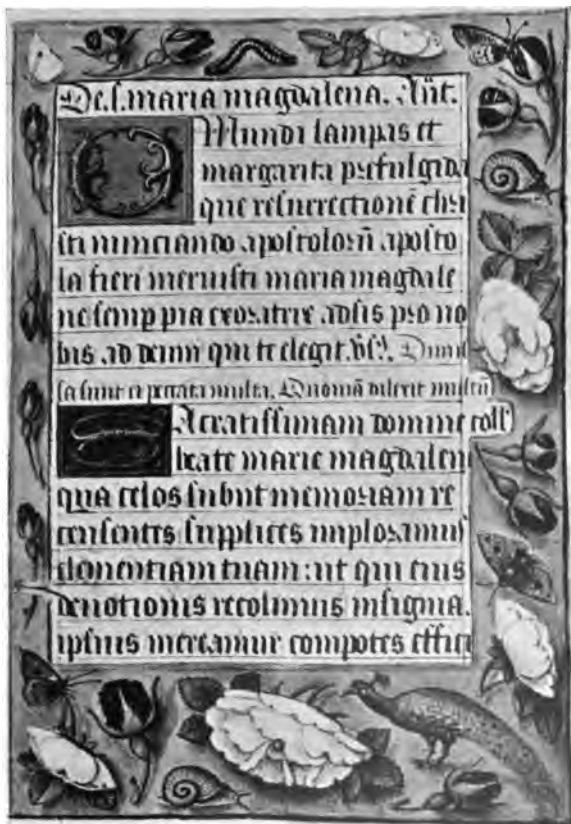 De. s. maria magdalena. Añt.
O Mundi lampas et
margarita prefulgida
que resurrectionē chri
sti nunciando apostolorū aposto
la fieri meruisti maria magdale
ne semp pia exoratrix adsis pro no
bis ad deum qui te elegit. v̄s. Dimis
sa sunt ei peccata multa. Quoniā dilexit multū
Sacratissimam domine coll'
beate marie magdalen
qua celos subiit memoriam re
censentes supplices imploramus
clementiam tuam: ut qui eius
deuotionis recolimus insignia.
ipsius mereamur compotes effici